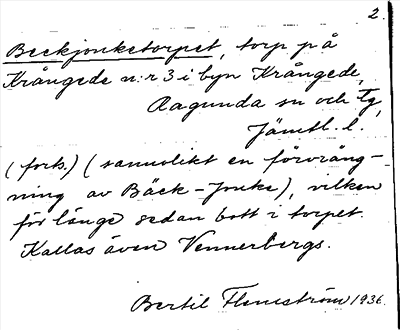 2.
Beckjonketorpet, torp på
Krångede n:r 3 i byn Krångede,
Ragunda sn och tg,
Jämtl. l.
(fork.) (sannolikt en förvräng-
ning av Bäck-Jonke), vilken
för länge sedan bott i torpet.
Kallas även Vennerbergs.
Bertil Flemström 1936.